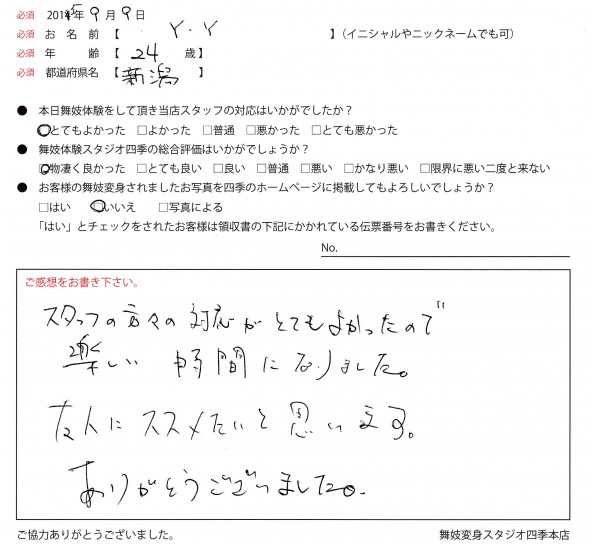 必須 2015年 9月 9日
必須 お名前 【 Y・Y 】（イニシャルやニックネームでも可）
必須 年齢 【 24 歳】
必須 都道府県名 【 新潟 】
● 本日舞妓体験をして頂き当店スタッフの対応はいかがでしたか？
□とてもよかった □よかった □普通 □悪かった □とても悪かった
● 舞妓体験スタジオ四季の総合評価はいかがでしょうか？
□物凄く良かった □とても良い □良い □普通 □悪い □かなり悪い □限界に悪い二度と来ない
● お客様の舞妓変身されましたお写真を四季のホームページに掲載してもよろしいでしょうか？
□はい □いいえ □写真による
「はい」とチェックをされたお客様は領収書の下記にかかれている伝票番号をお書きください。
No.
ご感想をお書き下さい。
スタッフの方々の対応がとてもよかったので
楽しい時間になりました。
友人にススメたいと思います。
ありがとうございました。
ご協力ありがとうございました。 舞妓変身スタジオ四季本店